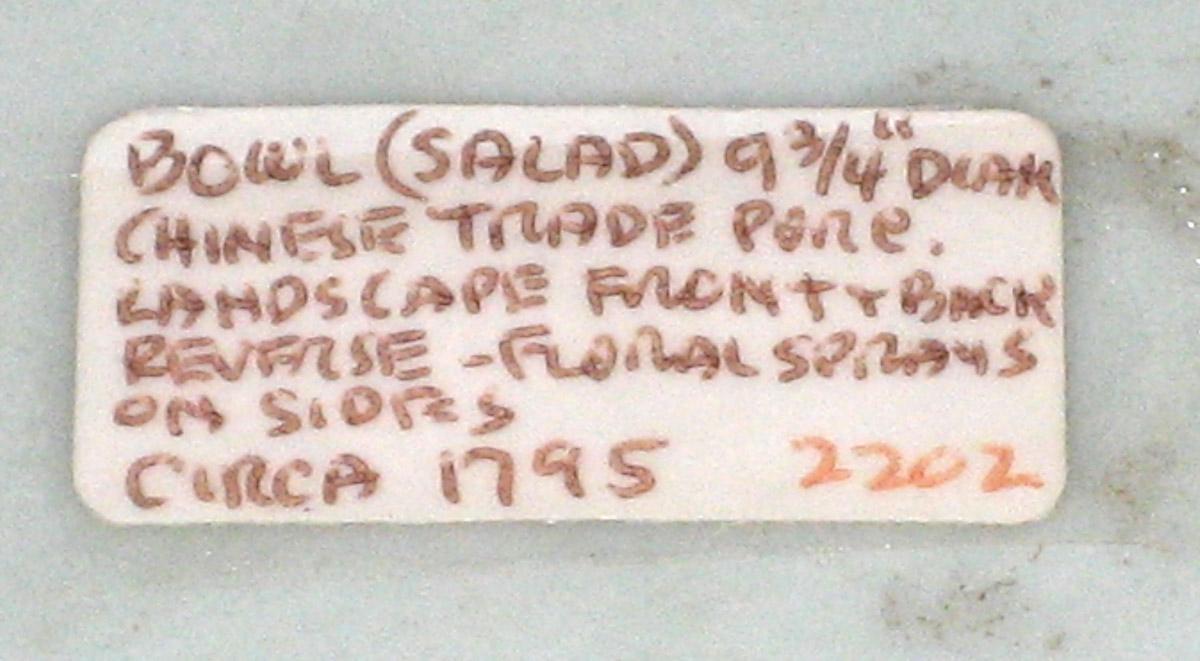 BOWL (SALAD) 9 3/4" DIAM
CHINESE TRADE PORC.
LANDSCAPE FRONT + BACK
REVERSE - FLORAL SPRAYS
ON SIDES
CIRCA 1795 2202